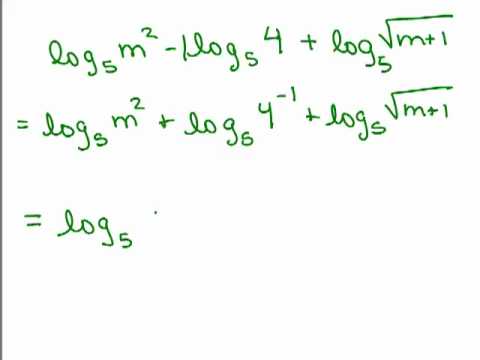 log₅ m² - 1log₅ 4 + log₅ √(m+1)
= log₅ m² + log₅ 4⁻¹ + log₅ √(m+1)
= log₅